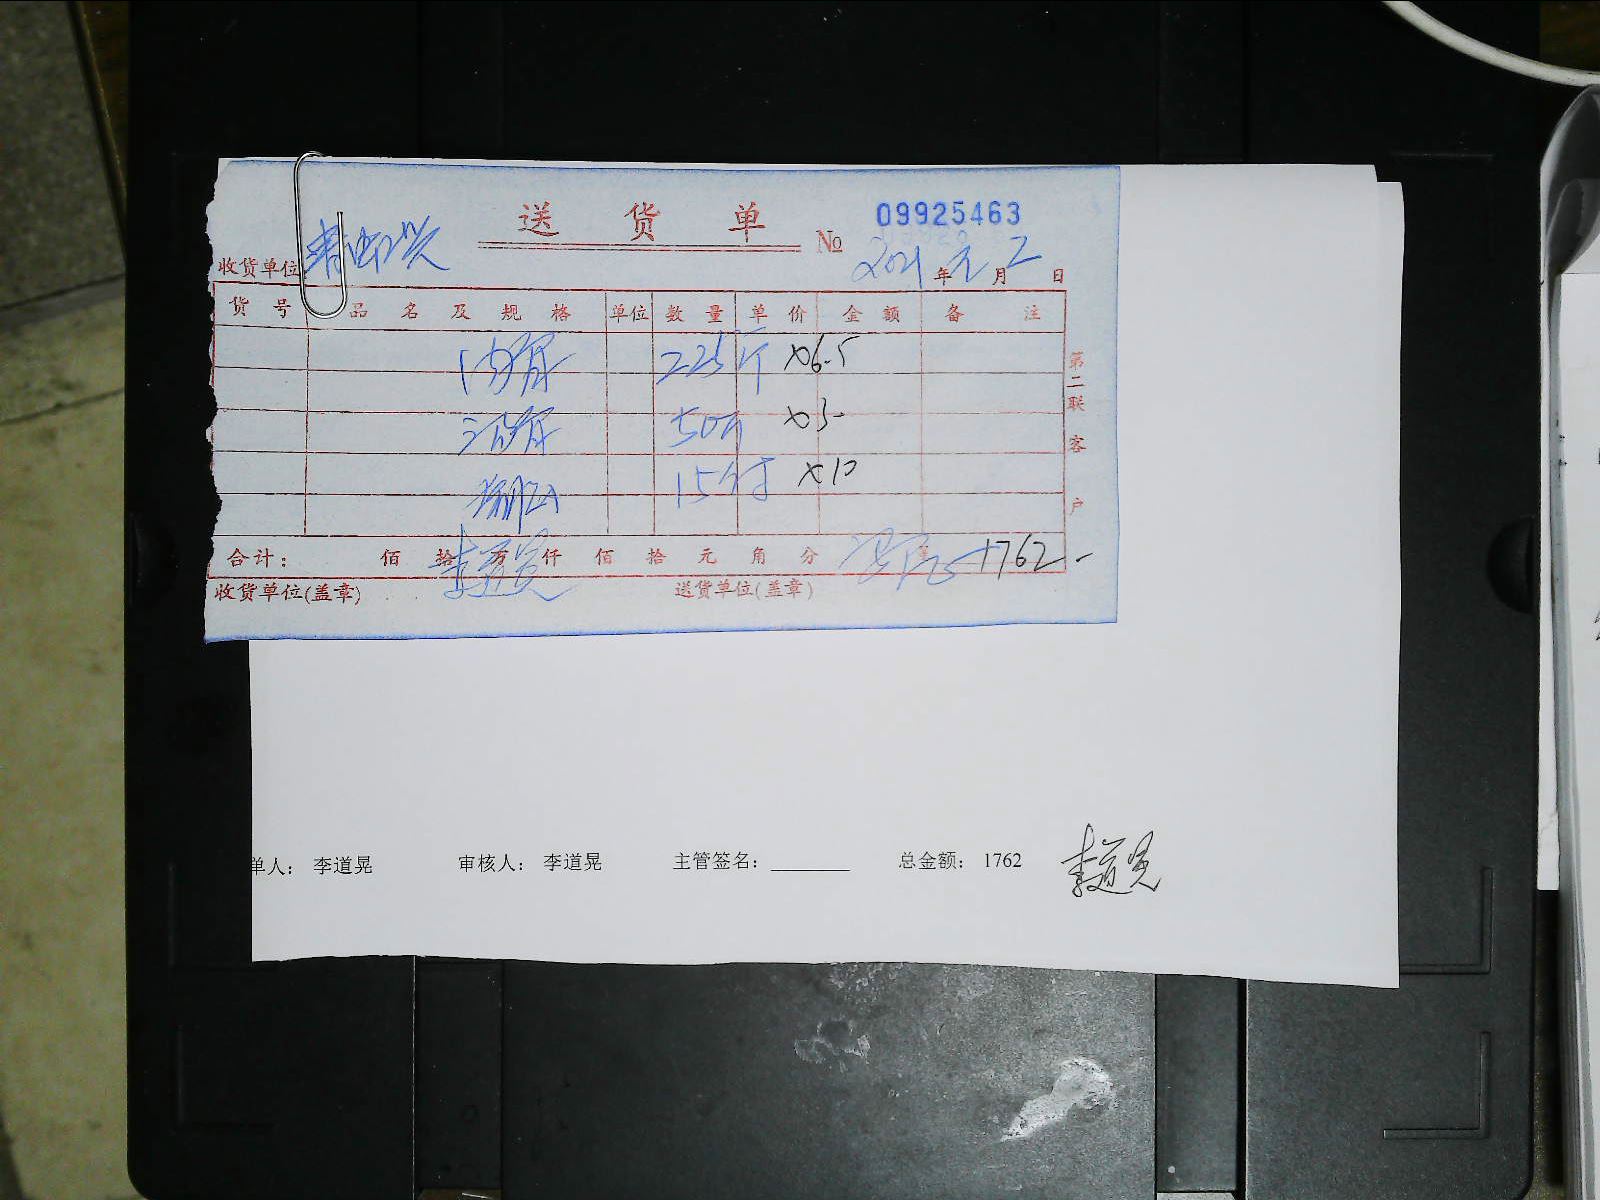 送货单 № 09925463
收货单位
2021年元月2日
货号 品名及规格 单位 数量 单价 金额 备注
225斤 ×6.5
50斤 ×3-
15付 ×10
合计： 佰拾万仟佰拾元角分 1762-
收货单位(盖章) 李道晃 送货单位(盖章)
第二联 客户
单人： 李道晃 审核人： 李道晃 主管签名： 总金额： 1762 李道晃